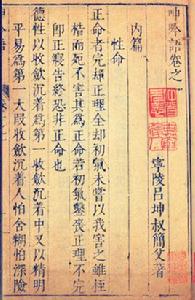 呻吟語卷之
寧陵呂坤叔簡父著
內篇
性命
正命者完却正理全却初氣未嘗以我害之雖桎
梏而死不害其為正命若初氣鑿喪正理不完
即正寢告終恐非正命也
德性以收斂沉着為第一收斂沉着中又以精明
平易為第一大段收斂沉着人怕含糊怕深險